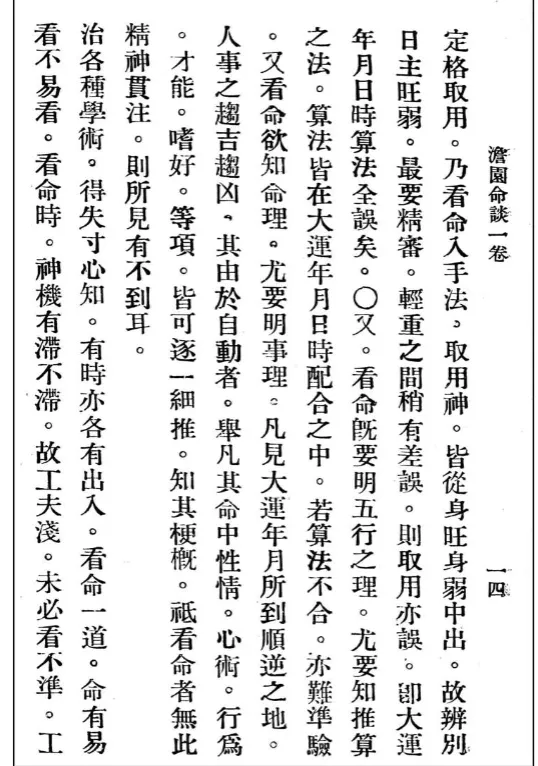 澹園命談一卷
一四
定格取用。乃看命入手法。取用神。皆從身旺身弱中出。故辨別
日主旺弱。最要精審。輕重之間稍有差誤。則取用亦誤。卽大運
年月日時算法全誤矣。〇又。看命旣要明五行之理。尤要知推算
之法。算法皆在大運年月日時配合之中。若算法不合。亦難準驗
。又看命欲知命理。尤要明事理。凡見大運年月所到順逆之地。
人事之趨吉趨凶、其由於自動者。舉凡其命中性情。心術。行爲
。才能。嗜好。等項。皆可逐一細推。知其梗概。祇看命者無此
精神貫注。則所見有不到耳。
治各種學術。得失寸心知。有時亦各有出入。看命一道。命有易
看不易看。看命時。神機有滯不滯。故工夫淺。未必看不準。工